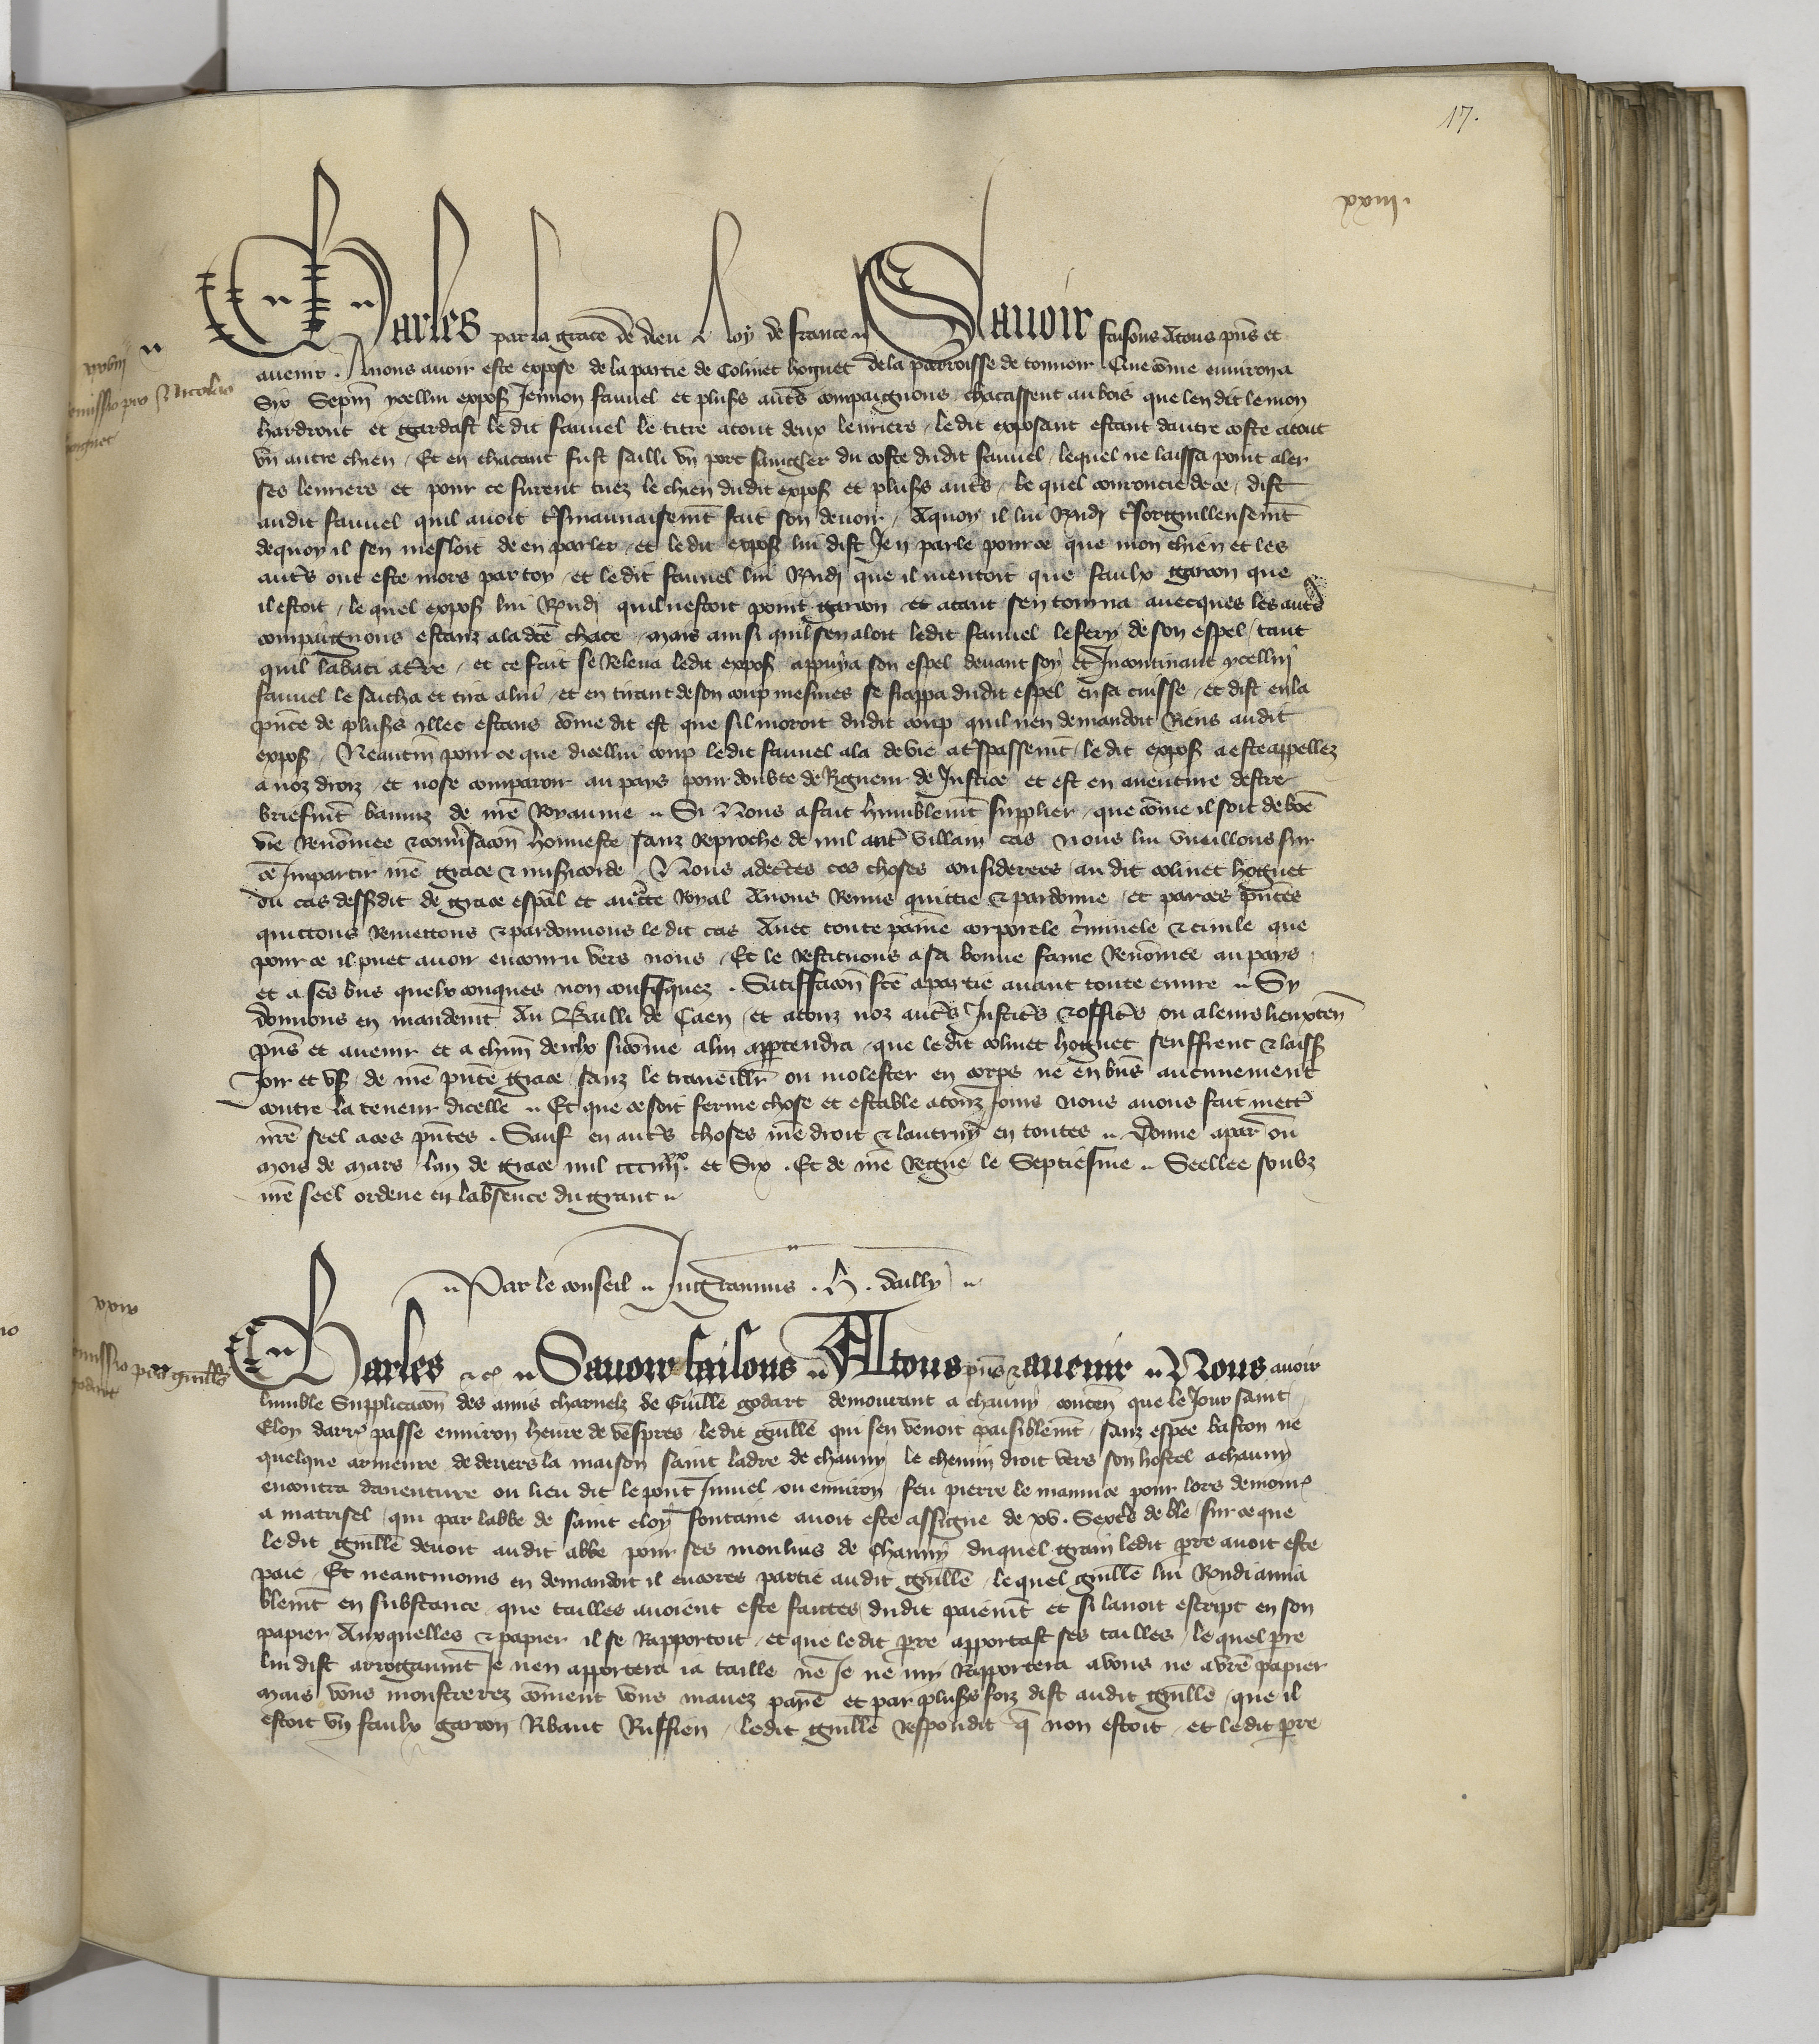 17.
xxviii
Remissio pro Nicolao
hoiguet
Charles par la grace de dieu Roy de france Savoir faisons Atous pñs et
avenir. A nous avoir este expose de la partie de Colinet hoguet de la parroisse de tonnoir Que cõme environ a
Six Sepm̃ ycellui expoß Jennon fauvel et plußs autr̃s compaignons chacassent au bois que len dit le mon
hardront et gardast le dit fauvel le titre atout deux levriers / le dit exposant estant dautre coste atout
un autre chien / Et en chacant fust sailli un porc sanigler du coste dudit fauvel / lequel ne laissa point aler
ses levriers et pour ce furent tuez le chien dudit expoß et plußs autr̃s / le quel courroucie de ce / dist
audit fauvel quil avoit tßmauvaisemt̃ fait son devoir / Aquoy il lui Rñdi tßorguilleusemt̃
dequoy il sen mesloit de en parler / et le dit expoß lui dist Jen parle pour ce que mon chien et les
autr̃s ont este mors par toy / et le dit fauvel lui Rñdi que il mentoit que faulx garcon que
il estoit / le quel expoß lui Rñdi quil nestoit point garcon et atant sen tourna avecques les autr̃s
compaignons estanz ala dcẽ chace / mais ainsi quil sen aloit ledit fauvel le fery de son espel / tant
quil labati at̃re / et ce fait se Releva ledit expoß appuya son espel devant soy et Incontinant ycellui
fauvel le sacha et tira alui / et en tirant de son coup mesmes se frappa dudit espel en sa cuisse / et dist en la
pñce de plußs illec estans cõme dit est que sil moroit dudit coup quil nen demandoit Riens audit
expoß / Neantm̃ pour ce que dicellui coup ledit fauvel ala de vie atßpassemt̃ / le dit expoß a este appellez
a noz droiz / et nose comparoir au pays pour doubte de Rigueur de Justice et est en aventure destre
briefmt̃ banniz de nr̃e Royaume Si Nous a fait humblemt̃ supplier / que cõme il soit de boñe
vie Renõmee &conv̾sacoñ honneste sanz Reproche de nul autr̃ villain cas Nous lui vueillons sur
ce Impartir nr̃e grace & mißicorde / Nous adectes ces choses considerees / au dit colinet hoguet
ou cas dessßdit de grace esp̃al et auct̃te Royal Avons Remis quittie & pardonne / et par ces pñtes
quittons Remettons & pardonnons le dit cas Avec toute paine corporele c̃minele & civile que
pour ce il puet avoir encouru vers nous / Et le Restituons a sa bonne fame Renõmee au pays
et a ses bñs quelxconques non confisquez . Satiffacoñ fc̃e apartie avant toute euvre Sy
donnons en mandemt̃ Au Bailli de Caen / et atouz noz autr̃s Justic̃s & officr̃s ou a leurs lieuxteñ
pñs et avenir et a chm̃ deulx sicõme alui appartendra / que le dit colinet hoguet seuffrent & laissß
Joir et uß de nr̃e pñte grace / sanz le traveillr̃ ou molester en corps ne en bñs aucunement
contre la teneur dicelle Et que ce soit ferme chose et estable atouz Jours Nous avons fait mettr̃
nr̃e seel aces pñtes . Sauf en autr̃s choses nr̃e droit & lautruy en toutes Donne apar̃ ou
mois de mars lan de grace mil cccıııı̽ˣ. et Six . Et de nr̃e Regne le Septiesme Seellee soubz
nr̃e seel ordene en labsence du grant
Par le conseil Ingrannus . H . dailly
xxix
Remissio pro guillẽ
godart
Charles &c̃ Savoir faisons Atous pñs & avenir Nous avoir
humble Supplicacoñ des amis charnelz de Guillẽ godart demourant a chauny conteñ que le Jour saint
Eloy darr̃ passe environ heure de vespres / ledit guillẽ qui sen venoit paisiblemt̃ / sanz espee baston ne
quelque armeure de devers la maison saint ladre de chauny le chemin droit vers son hostel achauny
encontra daventure ou lieu dit le pont Jnuel ou environ / feu pierre le mannue pour lors demour̃
a matrisel / qui par labbe de saint eloy fontaine avoit este assigne de xv. Sextr̃s de ble / sur ce que
ledit guillẽ devoit audit abbe pour ses moulins de Chauny duquel grain ledit pr̃re avoit este
paie / Et neantmoins en demandoit il encores partie audit guillẽ / le quel guillẽ lui Rondi amia
blemt̃ en substance que tailles avoient este faictes dudit paiemt̃ et si lavoit escript en son
papier Auxquelles & papier il se Rapportoit / et que le dit pr̃re apportast ses tailles / le quel pr̃re
lui dist arrogaumt̃ Je nen apportera ia taille ne Je ne my Rapportera avous ne avr̃e papier
mais vous monstrerez cõment vous mavez paye et par plußs foiz dist audit guillẽ que il
estoit un faulx garcon Ribaut Ruffien / ledit guillẽ respondit q̃ non estoit / et ledit pr̃re